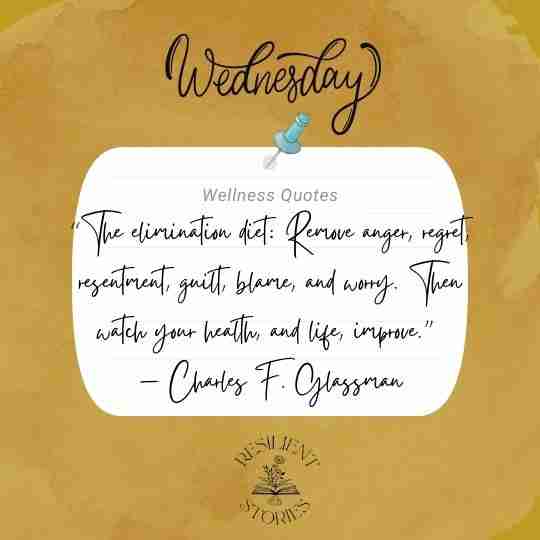 Wednesday
Wellness Quotes
"The elimination diet: Remove anger, regret,
resentment, guilt, blame, and worry. Then
watch your health, and life, improve."
– Charles F. Glassman
RESILIENT
STORIES